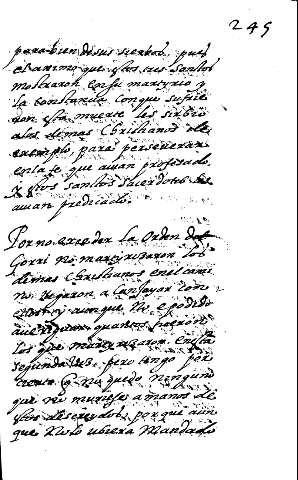 245
para bien de sus siervos, pues
el animo que estos tres santos
mostraron en su martyrio y
la constancia con que sufrie
ron esta muerte les sirbio
a los demas Christianos de
exemplo, para perseverar
en la fe que avian profesado
y estos santos sacerdotes les
avian predicado.
Por no exceder la orden del
no martyrizaron los
demas Christianos en el cami
no llegaron a Canfayor con
y aunque no e podido
quantos fueron
los que martyrizaron en esta
segunda vez, pero tengo por
cierto q no quedo ninguno
que no muriese a manos de
estos porque aun
que no lo ubiera mandado